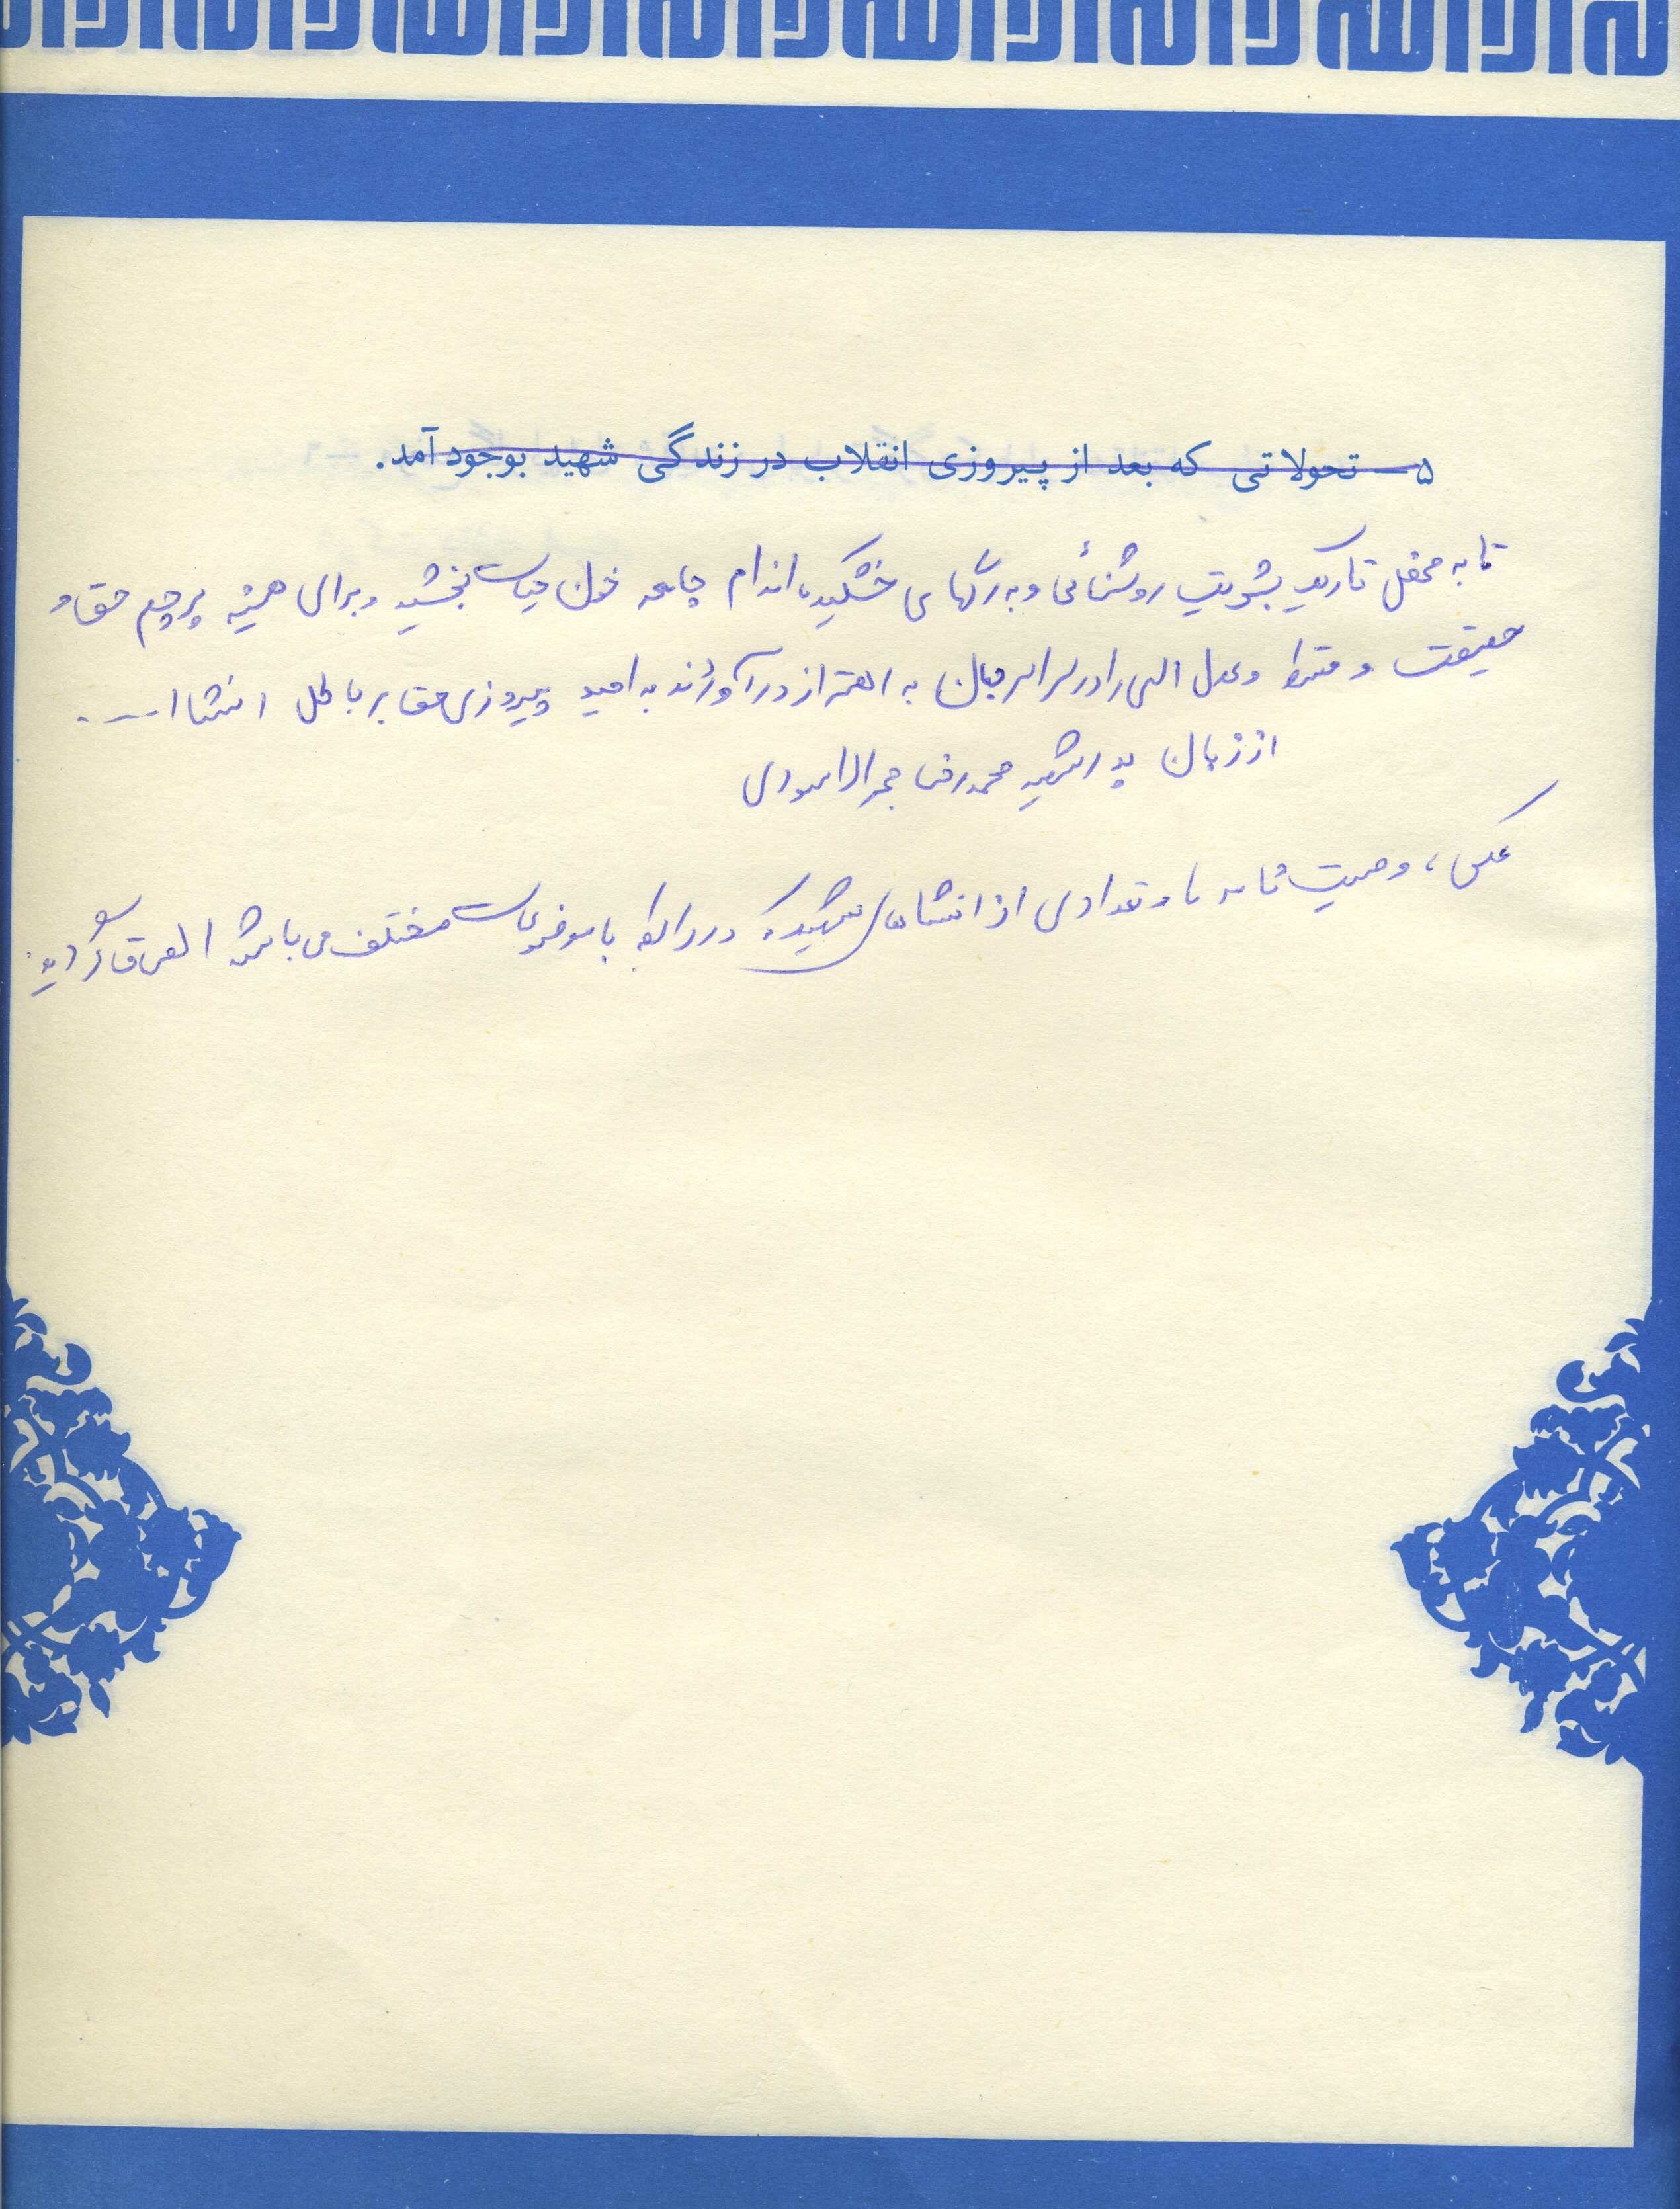 ۵ـ تحولاتی که بعد از پیروزی انقلاب در زندگی شهید بوجود آمد.
تا به محفل تاریک بشریت روشنائی و به رگهای خشکیده اندام جامعه خون حیات بخشید و برای همیشه پرچم حق و
حقیقت و قسط و عدل الهی را در سراسر جهان به اهتزاز در آورند به امید پیروزی حق بر باطل انشاا...
از زبان پدر شهید محمدرضا حجرالاسودی
عکس، وصیت نامه و تعدادی از انشاهای شهید که در رابطه با موضوعات مختلف می باشد